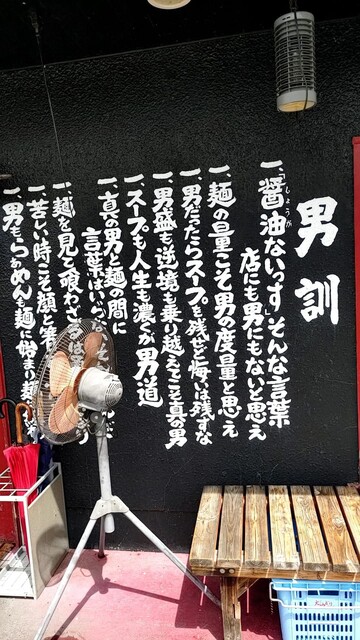 男訓
一、「醤油ないっす」そんな言葉
しょうが
店にも男にもないと思え
一、麺の量こそ男の度量と思え
一、男だったらスープを残せど悔いは残すな
一、男盛も逆境も乗り越えてこそ真の男
一、スープも人生も濃くが男道
一、真の男と麺の間に
言葉はいらな
一、麺を見て喰わざるは
一、苦しい時こそ顔と箸
一、男もらぁめんも麺に始まり麺